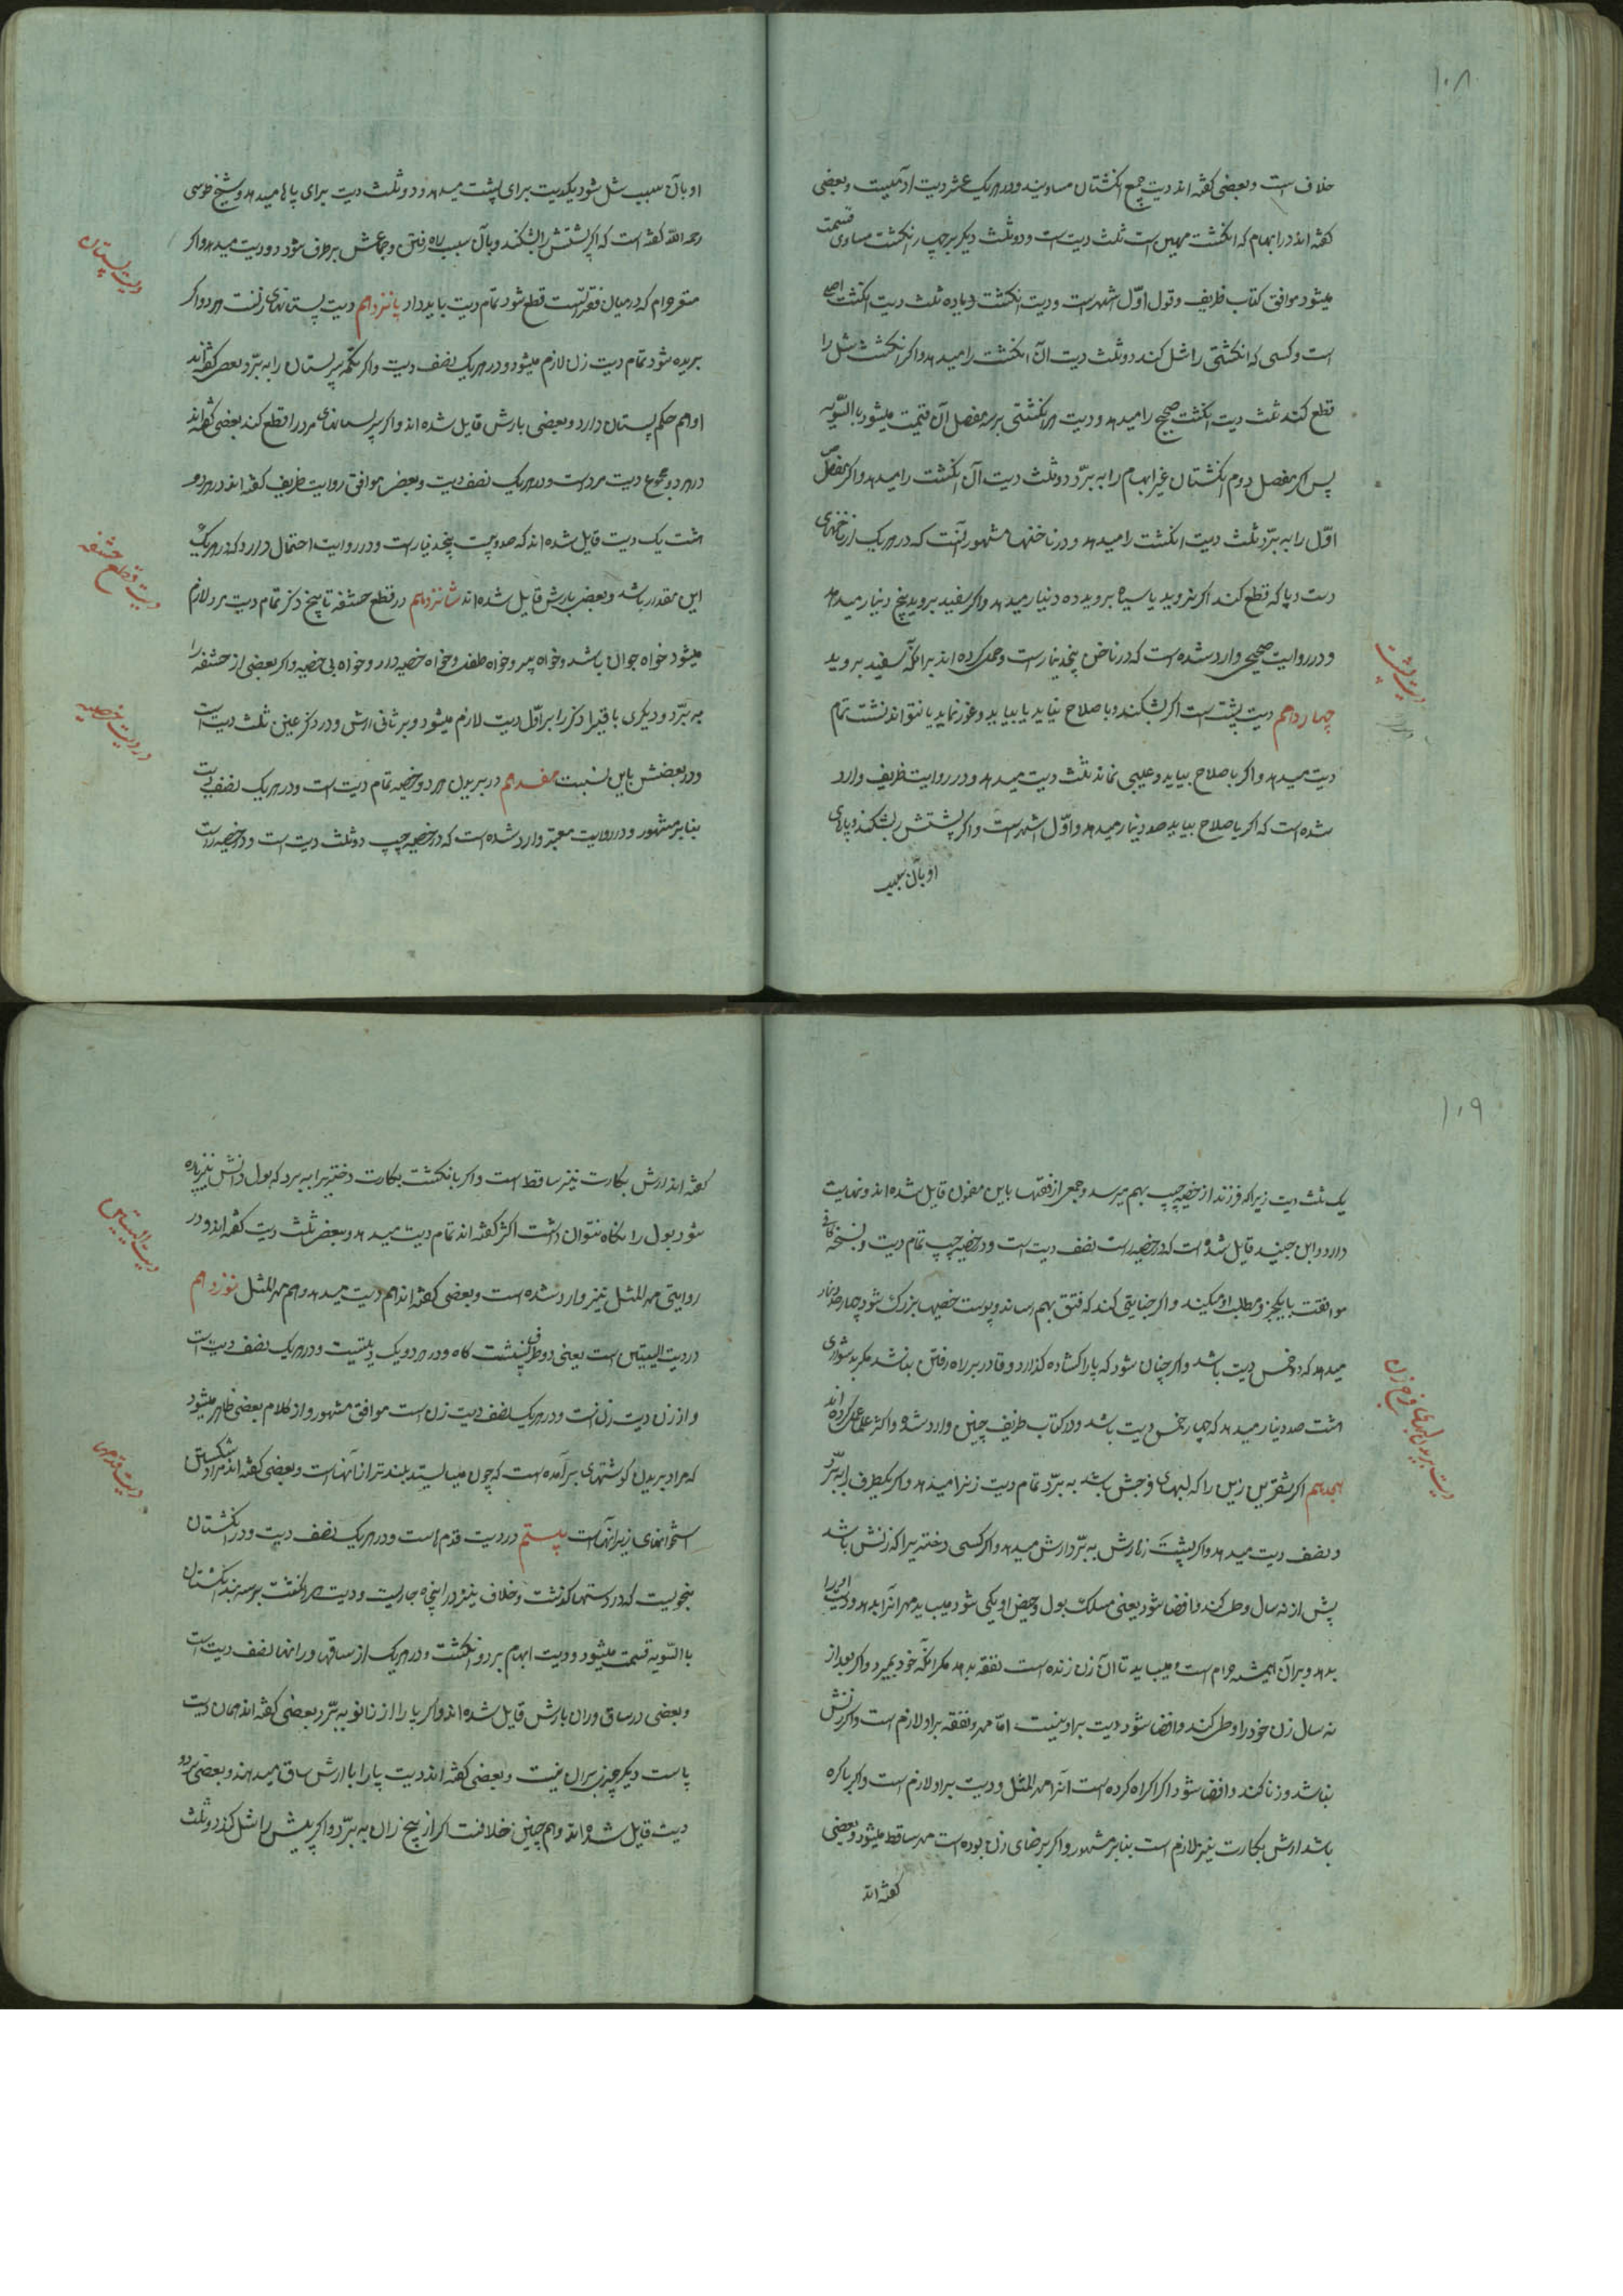 ۱۰۸
خلاف است و بعضی کفته اند دیت جمیع انکشتان مساویند و در هریک عشر دیت آدمیست و بعضی
کفته اند در ابهام که انکشت مهین است ثلث دیت است و دو ثلث دیکر بر چهار انکشت مساوی قسمت
میشود موافق کتاب ظریف و قول اوّل اشهر است و دیت انکشت زیاده ثلث دیت انکشت اصلی
است و کسی که انکشتی را شل کند دو ثلث دیت آن انکشت را میدهد و اکر انکشت شل را
قطع کند ثلث دیت انکشت صحیح را میدهد و دیت هر انکشتی بر سه مفصل آن قسمت میشود بالسّویه
پس اکر مفصل دوم انکشتان غیر ابهام را به برّد دو ثلث دیت آن انکشت را میدهد و اکر مفصل
اوّل را به برّد ثلث دیت انکشت را میدهد و در ناخنها مشهور آنست که در هریک از ناخنهای
دست و پا که قطع کند اکر نروید یا سیاه بروید ده دینار میدهد و اکر سفید بروید پنج دینار میدهد
و در روایت صحیحی وارد شده است که در ناخن پنج دینار است و حمل کرده اند بر آنکه سفید بروید
چهاردهم دیت پشت است اکر بشکند و باصلاح نیاید یا بیاید و غوز نماید یا نتواند نشست تمام
دیت میدهد و اکر باصلاح بیاید و عیبی نماند ثلث دیت میدهد و در روایت ظریف وارد
شده است که اکر باصلاح بیاید صد دینار میدهد و اوّل اشهر است و اکر پشتش بشکند و پاهای
او بآن سبب
دیت پشت
او بآن سبب شل شود یکدیت برای پشت میدهد و دو ثلث دیت برای پاها میدهد و شیخ طوسی
رحمه الله کفته است که اکر پشتش را بشکند و بآن سبب راه رفتن و جماعش برطرف شود دو دیت میدهد و اکر
مغز حرام که در میان فقرات پشت قطع شود تمام دیت باید داد پانزدهم دیت پستانهای زنست هر دو اکر
بریده شود تمام دیت زن لازم میشود و در هریک نصف دیت و اکر تکمه سر پستان را به برّد بعضی کفته اند
او هم حکم پستان دارد و بعضی بارش قایل شده اند و اکر سر پستانهای مرد را قطع کند بعضی کفته اند
در هر دو مجموع دیت مرد است و در هریک نصف دیت و بعضی موافق روایت ظریف کفته اند در هر دو
هشت یک دیت قایل شده اند که صد و بیست و پنج دینار است و در روایت احتمال دارد که در هریک
این مقدار باشد و بعضی بارش قایل شده اند شانزدهم در قطع حشفه تا بیخ ذکر تمام دیت مرد لازم
میشود خواه جوان باشد و خواه پیر و خواه طفل و خواه خصیه دارد و خواه بی خصیه و اکر بعضی از حشفه را
به برّد و دیکری باقی را ذکر را بر اوّل دیت لازم میشود و بر ثانی ارش و در ذکر عنین ثلث دیت است
و در بعضش باین نسبت هفدهم در بریدن هر دو خصیه تمام دیت است و در هریک نصف دیت
بنا بر مشهور و در روایت معتبر وارد شده است که در خصیه چپ دو ثلث دیت است و در خصیه راست
دیت پستان
دیت قطع حشفه
در دیت خصیه
۱۰۹
یک ثلث دیت زیرا که فرزند از خصیه چپ بهم میرسد و جمعی از فقها باین مضمون قایل شده اند و نهایت
دارد و ابن جنید قایل شده است که در خصیه راست نصف دیت است و در خصیه چپ تمام دیت و نسخه کافی
موافقت باینکه و مطلب او میکند و اکر جنایتی کند که فتق بهم رساند و پوست خصیها بزرک شود چهار صد دینار
میدهد که دو خمس دیت باشد و اکر چنان شود که پا را کشاده کذارد و قادر بر راه رفتن نباشد مکر بدشواری
هشت صد دینار میدهد که چهار خمس دیت باشد و در کتاب ظریف چنین وارد شده و اکثر علما عمل کرده اند
هجدهم اکر شفرین زن را که لبهای فرجش باشد به برّد تمام دیت زن را میدهد و اکر یکطرف را به برّد
نصف دیت میدهد و اکر پشت زهارش به برّد ارش میدهد و اکر کسی دختریرا که زنش باشد
پیش از نه سال وطی کند و افضا شود یعنی مسلک بول و حیض او یکی شود میباید مهر آنرا بدهد و دیت او را
بدهد و بر آن همیشه حرام است و میباید تا آن زن زنده است نفقه بدهد مکر آنکه خود بمیرد و اکر بعد از
نه سال زن خود را وطی کند و افضا شود دیت بر او نیست امّا مهر و نفقه بر او لازم است و اکر زنش
نباشد و زنا کند و افضا شود اکر اکراه کرده است آنرا مهر المثل و دیت بر او لازم است و اکر باکره
باشد ارش بکارت نیز لازم است بنا بر مشهور و اکر برضای زن بوده است مهر ساقط میشود و بعضی
کفته اند
دیت بریدن لبهای فرج زن
کفته اند ارش بکارت نیز ساقط است و اکر بانکشت بکارت دختریرا به برد که بول دانش نیز پاره
شود بول را نکاه نتوان داشت اکثر کفته اند تمام دیت میدهد و بعضی ثلث دیت کفته اند و در
روایتی مهر المثل نیز وارد شده است و بعضی کفته اند هم دیت میدهد و هم مهر المثل نوزدهم
در دیت الیتین است یعنی دو طرف نشست کاه و در هر دو یک دیتست و در هریک نصف دیت است
و از زن دیت زنست و در هریک نصف دیت زن است موافق مشهور و از کلام بعضی ظاهر میشود
که مراد بریدن کوشتهای برآمده است که چون میایستد بلندتر از آنهاست و بعضی کفته اند مراد شکستن
استخوانهای زیر آنهاست بیستم در دیت قدم است و در هریک نصف دیت و در انکشتان
بنحویست که در دستها کذشت و خلاف نیز در اینجا جاریست و دیت هر انکشت بر سه بند انکشتان
بالسّویه قسمت میشود و دیت ابهام بر دو انکشت و در هریک از ساقها و رانها نصف دیت است
و بعضی در ساق و ران بارش قایل شده اند و اکر پا را از زانو به برّد بعضی کفته اند همان دیت
پاست دیکر چیزی بر آن نیست و بعضی کفته اند دیت پا را با ارش ساق میدهند و بعضی بر دو
دیت قایل شده اند و هم چنین خلافست اکر از بیخ ران به برّد و اکر پایش را شل کند دو ثلث
دیت الیتین
دیت قدمها